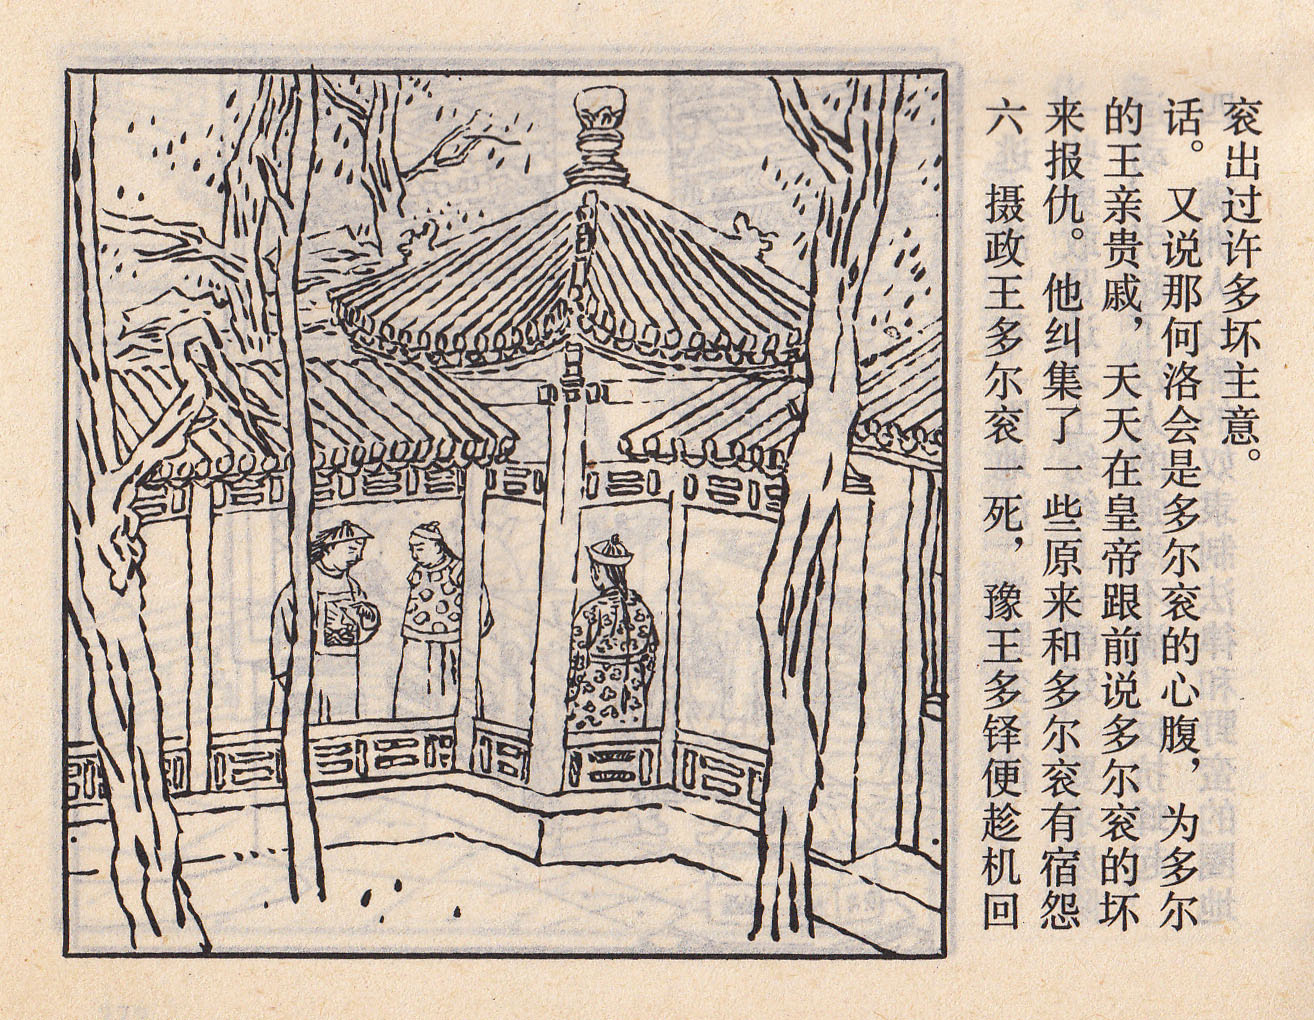 六 摄政王多尔衮一死，豫王多铎便趁机回
来报仇。他纠集了一些原来和多尔衮有宿怨
的王亲贵戚，天天在皇帝跟前说多尔衮的坏
话。又说那何洛会是多尔衮的心腹，为多尔
衮出过许多坏主意。